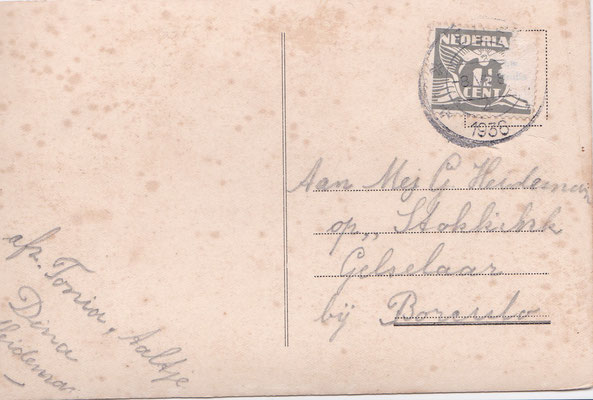 NEDERLA
1½
CENT
1936
Aan Mej G Heideman
op „ Stokkink
Gelselaar
bij Borculo
afz. Tonia, Aaltje
Dina
Heideman